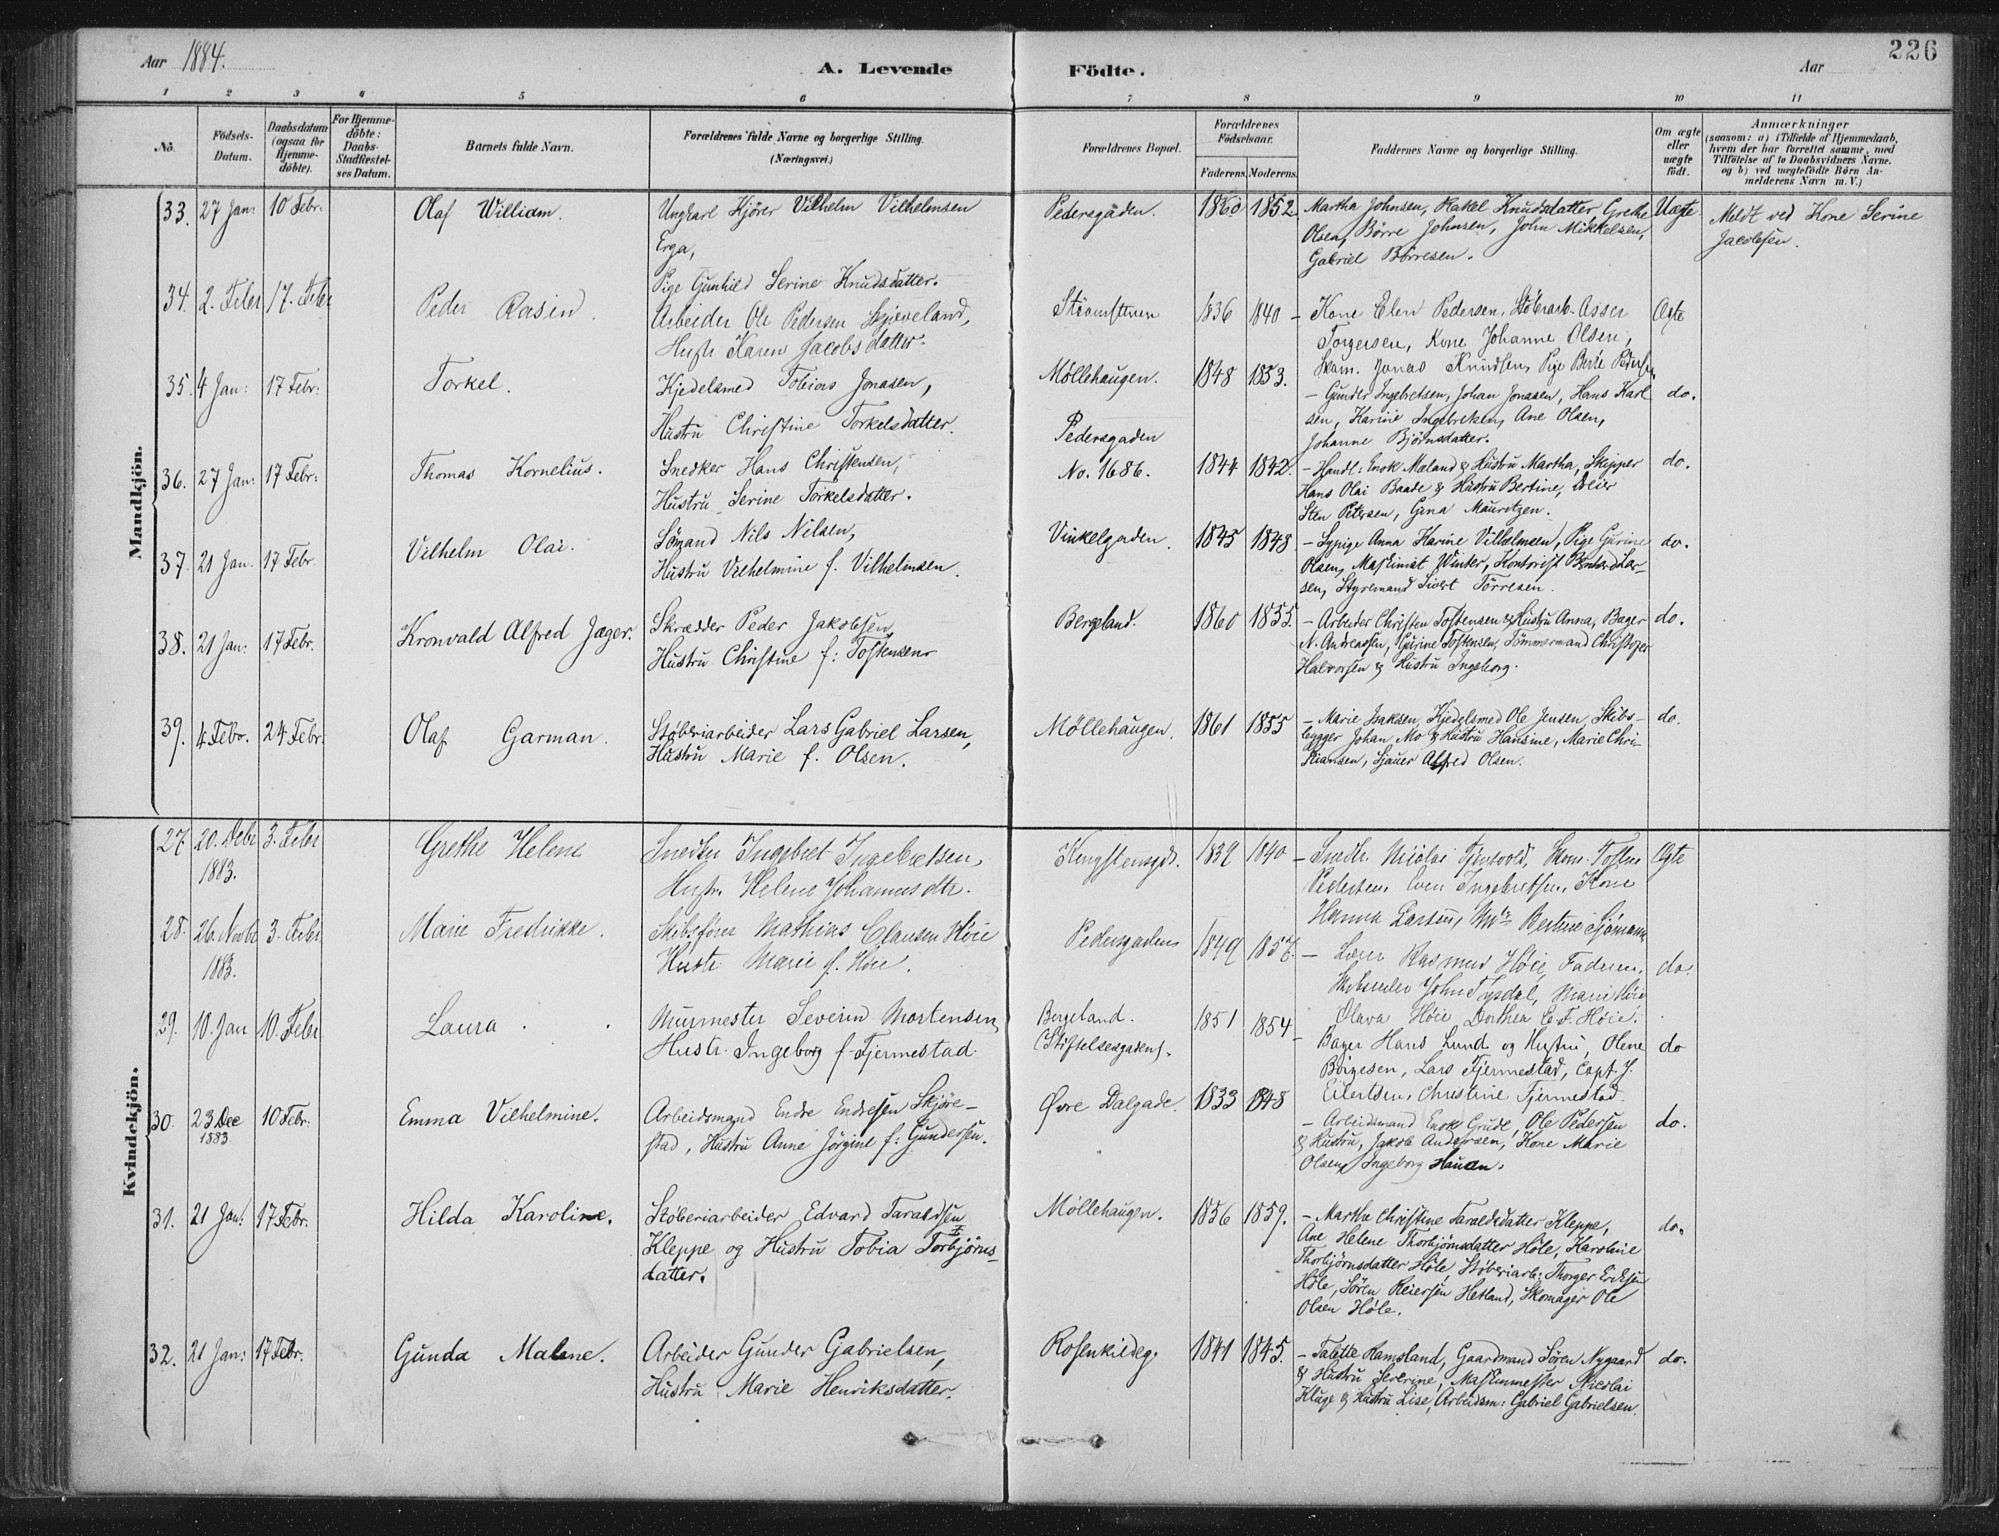 Aar 1884.
A. Levende
Födte.
Aar
226
1 2 3 4 5 6 7 8 9 10 11
No.
Födsels-Datum.
Daabsdatum (ogsaa for Hjemme-döbte).
For Hjemme-döbte: Daabs-Stadfæstel-ses Datum.
Barnets fulde Navn.
Forældrenes fulde Navne og borgerlige Stilling. (Næringsvei.)
Forældrenes Bopæl.
Forældrenes Födselsaar. Faderens. Moderens.
Faddernes Navne og borgerlige Stilling.
Om ægte eller uægte födt.
Anmærkninger (saasom: a) i Tilfælde af Hjemmedaab, hvem der har forrettet samme, med Tilföielse af to Daabsvidners Navne, og b) ved uægtefödte Börn An-melderens Navn m. V.)
Mandkjön.
33. 27 Jan: 10 Febr: Olaf William.
Ungkarl Kjører Vilhelm Vilhelmsen
Erga,
Pige Gunhild Serine Knudsdatter.
Pedersgaden. 1860 1852.
Martha Johnsen, Rakel Knudsdatter Grethe
Olsen, Börre Johnsen, John Mikkelsen,
Gabriel Börresen.
Uægte.
Meldt ved Kone Serine
Jacobsen.
34. 2. Febr 17. Febr Peder Rasin.
Arbeider Ole Pedersen Skjeveland,
Hustr Karen Jacobsdatter.
1836 1840
– Kone Elen Pedersen, Asser
Torgersen, Kone Johanne Olsen,
Skom. Jonas Knudsen, Pige
Ægte
35. 4 Jan: 17 Febr: Torkel.
Kjedelsmed Tobias Jonasen,
Hustru Christine Torkelsdatter.
Möllehaugen. 1848 1853.
– Gunder Ingebretsen, Johan Jonasen, Hans Karl
sen, Karine Ingebretsen, Ane Olsen,
Johanne Bjørnsdatter.
do.
36. 27 Jan: 17 Febr: Thomas Kornelius.
Snedker Hans Christensen,
Hustru Serine Torkelsdatter.
Pedersgaden
No. 1686. 1844 1842.
– Handl: Enok Maland & Hustru Martha, Skipper
Hans Olai Baade & Hustru Bertine,
Sten Petersen, Gina Mauritzen.
do.
37. 21 Jan. 17 Febr. Vilhelm Olai.
Sömand Nils Nilsen,
Hustru Vilhelmine f. Vilhelmsen.
Vinkelgaden. 1845 1848
– Sypige Anna Karine Vilhelmsen, Pige Gurine
Olsen, Maskinist Winter, Kontorist
sen, Styremand Sivert Törresen.
do.
38. 21 Jan: 17 Febr. Kronvald Alfred Jæger.
Skrædder Peder Jakobsen,
Hustru Christine f: Tostensen
Bergeland. 1860 1855.
– Arbeider Christen Tostensen & Hustru Anna, Bager
N. Andreassen, Gurine Tostensen, Tömmermand Christofer
Halvorsen & Hustru Ingeborg.
do.
39. 4 Febr. 24 Febr. Olaf Garman.
Støberiarbeider Lars Gabriel Larsen,
Hustru Marie f. Olsen.
Möllehaugen. 1861 1855
– Marie Isaksen, Kjedelsmed Ole Jensen, Skibs-
bygger Johan Mo & Hustru Hansine, Marie Chri-
stiansen, Sjauer Alfred Olsen.
do.
Kvindekjön.
27. 20. Decbr 3. Febr Grethe Helene
1883.
Snedker Ingebret Ingebretsen,
Hustr. Helene Johannesdtr.
1839 1840
– Snedkr. Nicolai Tjentvold, Skom. Tosten
Pedersen, Even Ingebretsen, Kone
Hanna Larsen, Bertine Sjömann
Ægte
28. 26. Novbr 3. Febr Marie Fredrikke.
1883.
Skibsfører Mathias Clausen Høie
Hustr. Marie f. Høie.
Pedersgaden 1849 1857.
– Lærer Rasmus Høie, Faderen,
John Tysdal, Marie Høie
Olava Høie Dorthea C. F. Høie.
do.
29. 10. Jan 10. Febr Laura.
Murmester Severin Mortensen
Hustr. Ingeborg f. Fjermestad.
Bergeland.
(Stiftelsesgaden). 1851 1854
– Bager Hans Lund og Hustru, Olene
Börgesen, Lars Fjermestad, Capt. J.
Eilertsen, Christine Fjermestad.
do
30. 23 Dec 10 Febr: Emma Vilhelmine.
1883
Arbeidsmand Endre Endresen Skjøre-
stad, Hustru Anne Jörgine f: Gundersen.
Øvre Dalgade. 1833 1848
– Arbeidsmand Enok Grude, Ole Pedersen
& Hustru, Jakob Andersen, Kone Marie
Olsen, Ingeborg Hauan.
do.
31. 21 Jan: 17 Febr. Hilda Karoline.
Støberiarbeider Edvard Taraldsen
Kleppe og Hustru Tobia Torbjörns-
datter.
Möllehaugen. 1856 1859.
– Martha Christine Taraldsdatter Kleppe,
Ane Helene Thorbjørnsdatter Høle, Karoline
Thorbjørnsdatter Høle, Støberiarb: Thorger Eriksen
Høle, Sören Reiersen Hetland, Skomager Ole
Olsen Høle.
do.
32. 21 Jan: 17 Febr. Gunda Malene.
Arbeider Gunder Gabrielsen,
Hustru Marie Henriksdatter.
Rosenkildeg. 1841 1845.
– Talette Ramsland, Gaardmand Sören Nygaard
& Hustru Severine, Maskinmester Nicolai
Kluge & Hustru Lise, Arbeidsm: Gabriel Gabrielsen.
do.